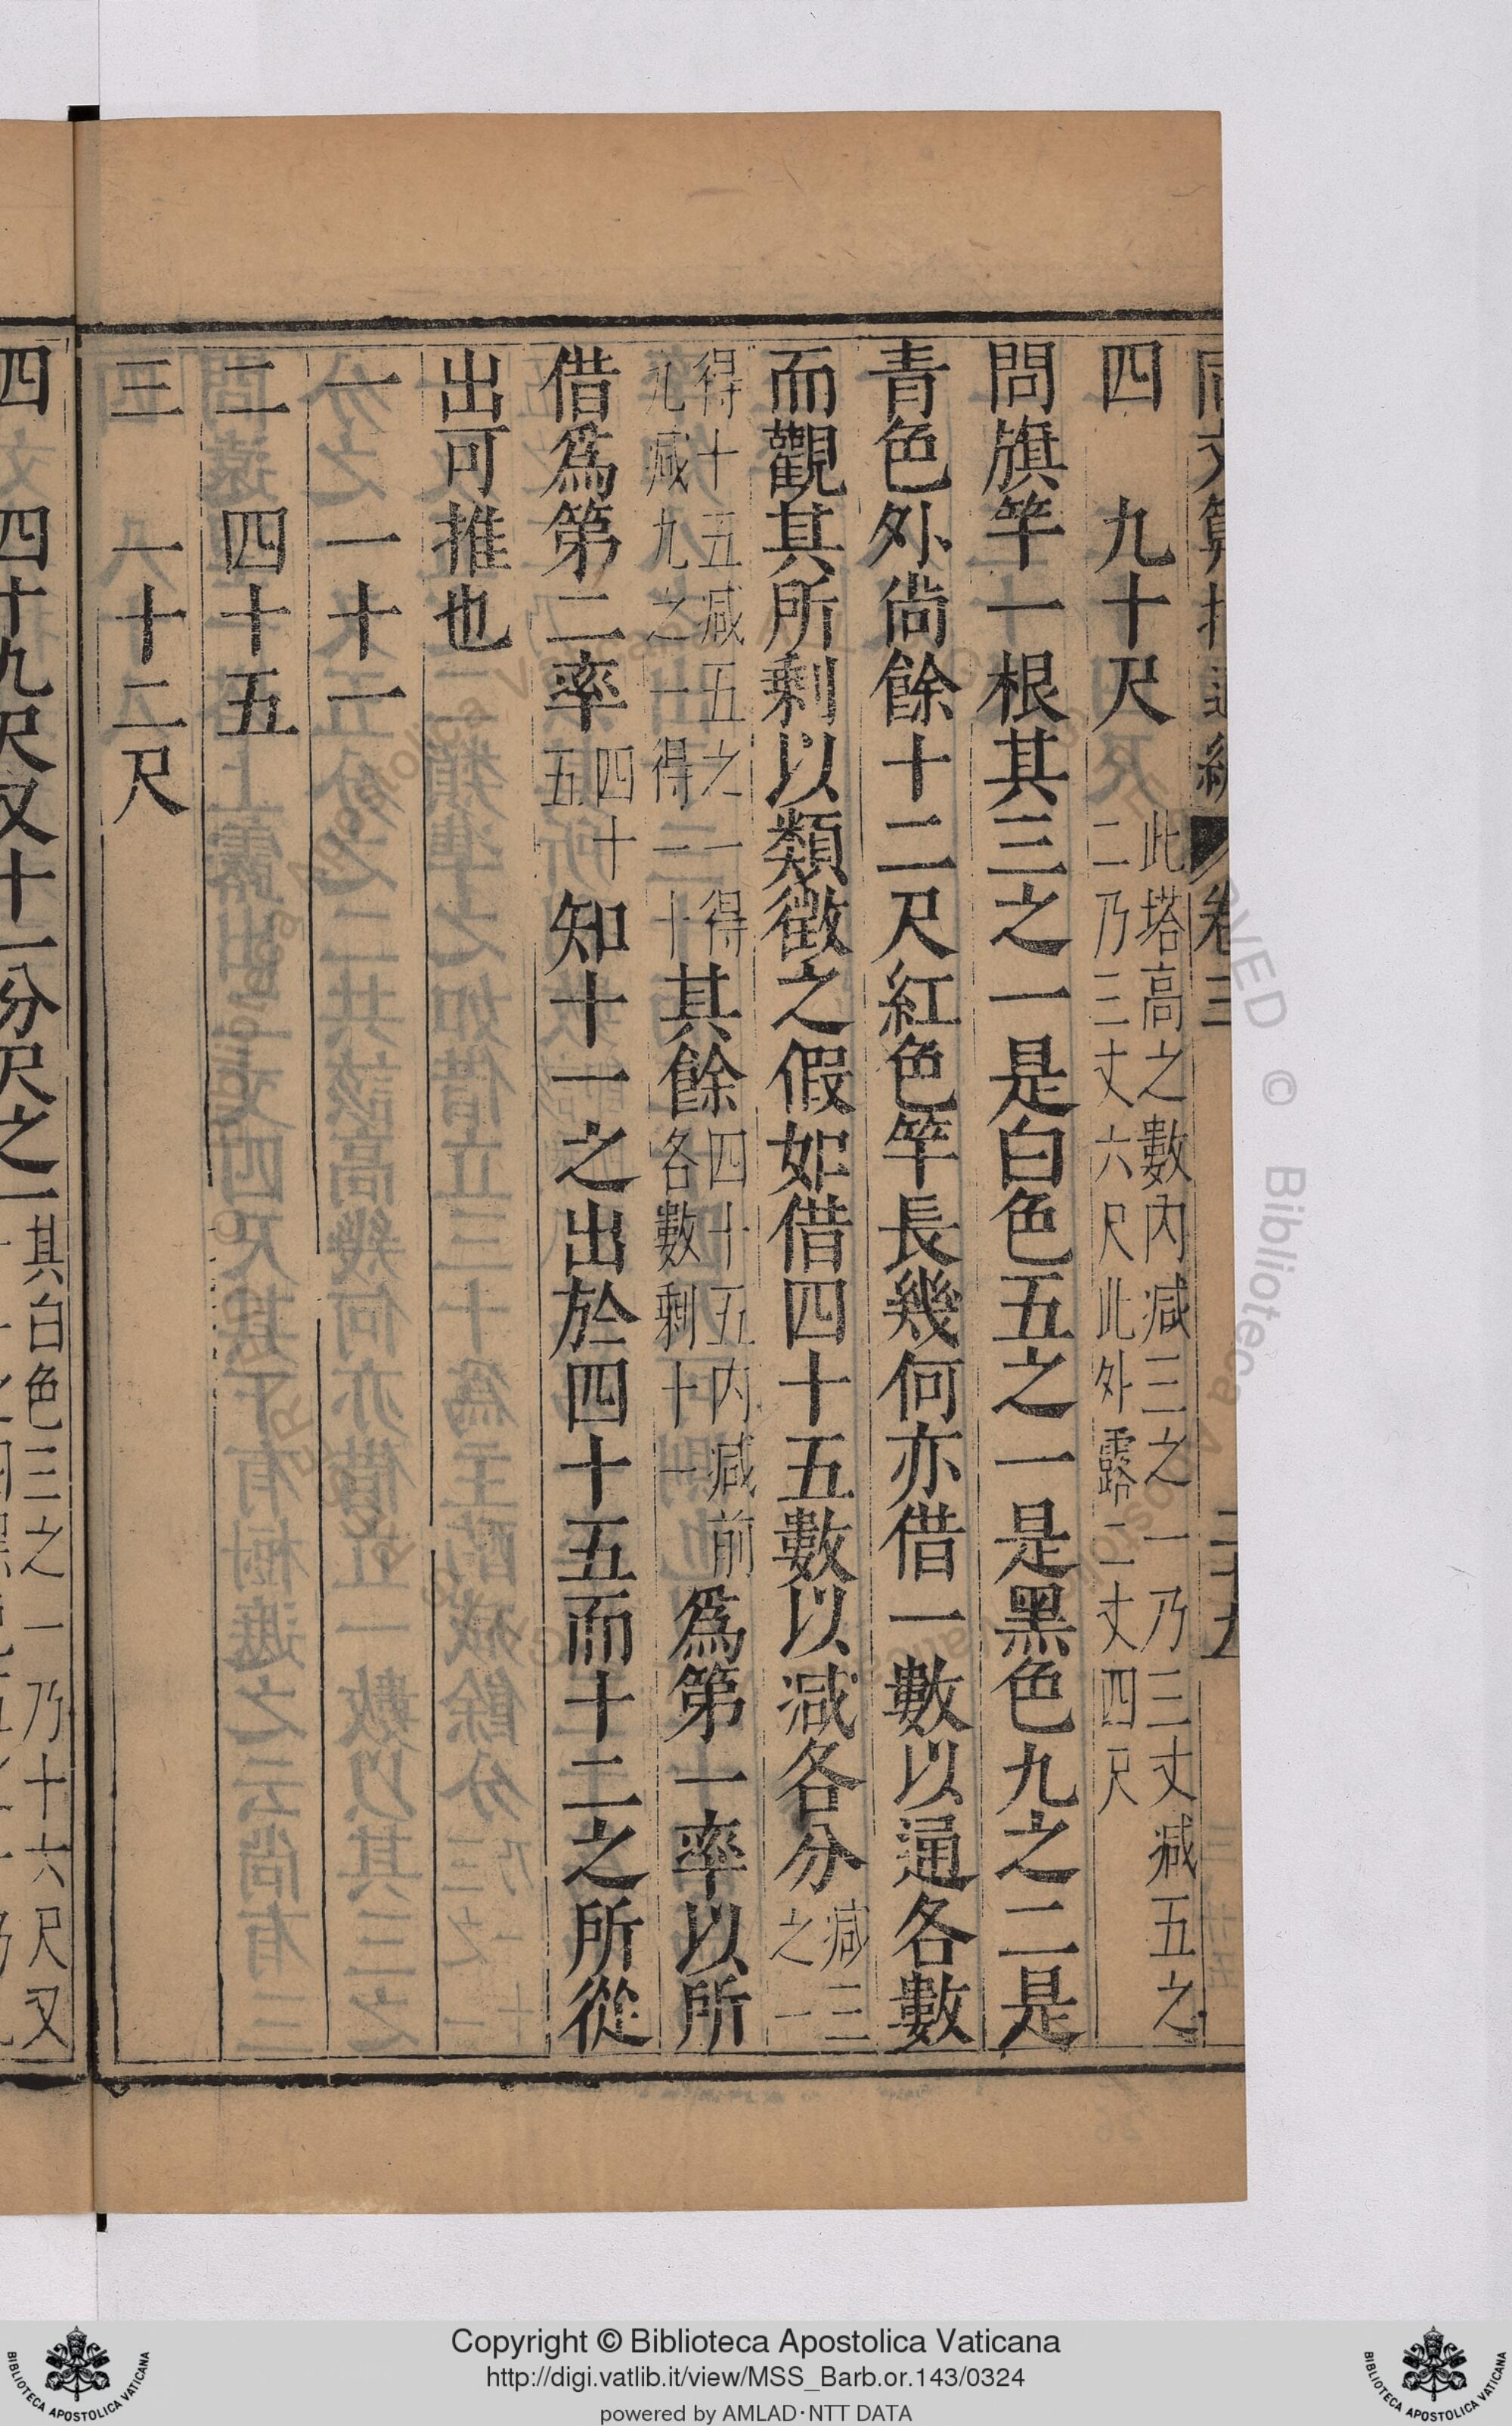 四　九十尺此塔高之數內減三之一乃三丈減五之二乃三丈六尺此外露二丈四尺
問旗竿一根其三之一是白色五之一是黑色九之二是
青色外尚餘十二尺紅色竿長幾何亦借一數以通各數
而觀其所剩以類徵之假如借四十五數以減各分減三之一
得十五減五之一得九減九之一得二十其餘四十五内減前各數剩十一為第一率以所
借為第二率四十五知十一之出於四十五而十二之所從
出可推也
一　一十一
二　四十五
三　一十二尺
四　四十九尺又十一分尺之一其白色三之一乃十六尺又
Copyright © Biblioteca Apostolica Vaticana
http://digi.vatlib.it/view/MSS_Barb.or.143/0324
powered by AMLAD·NTT DATA
BIBLIOTECA APOSTOLICA VATICANA
BIBLIOTECA APOSTOLICA VATICANA